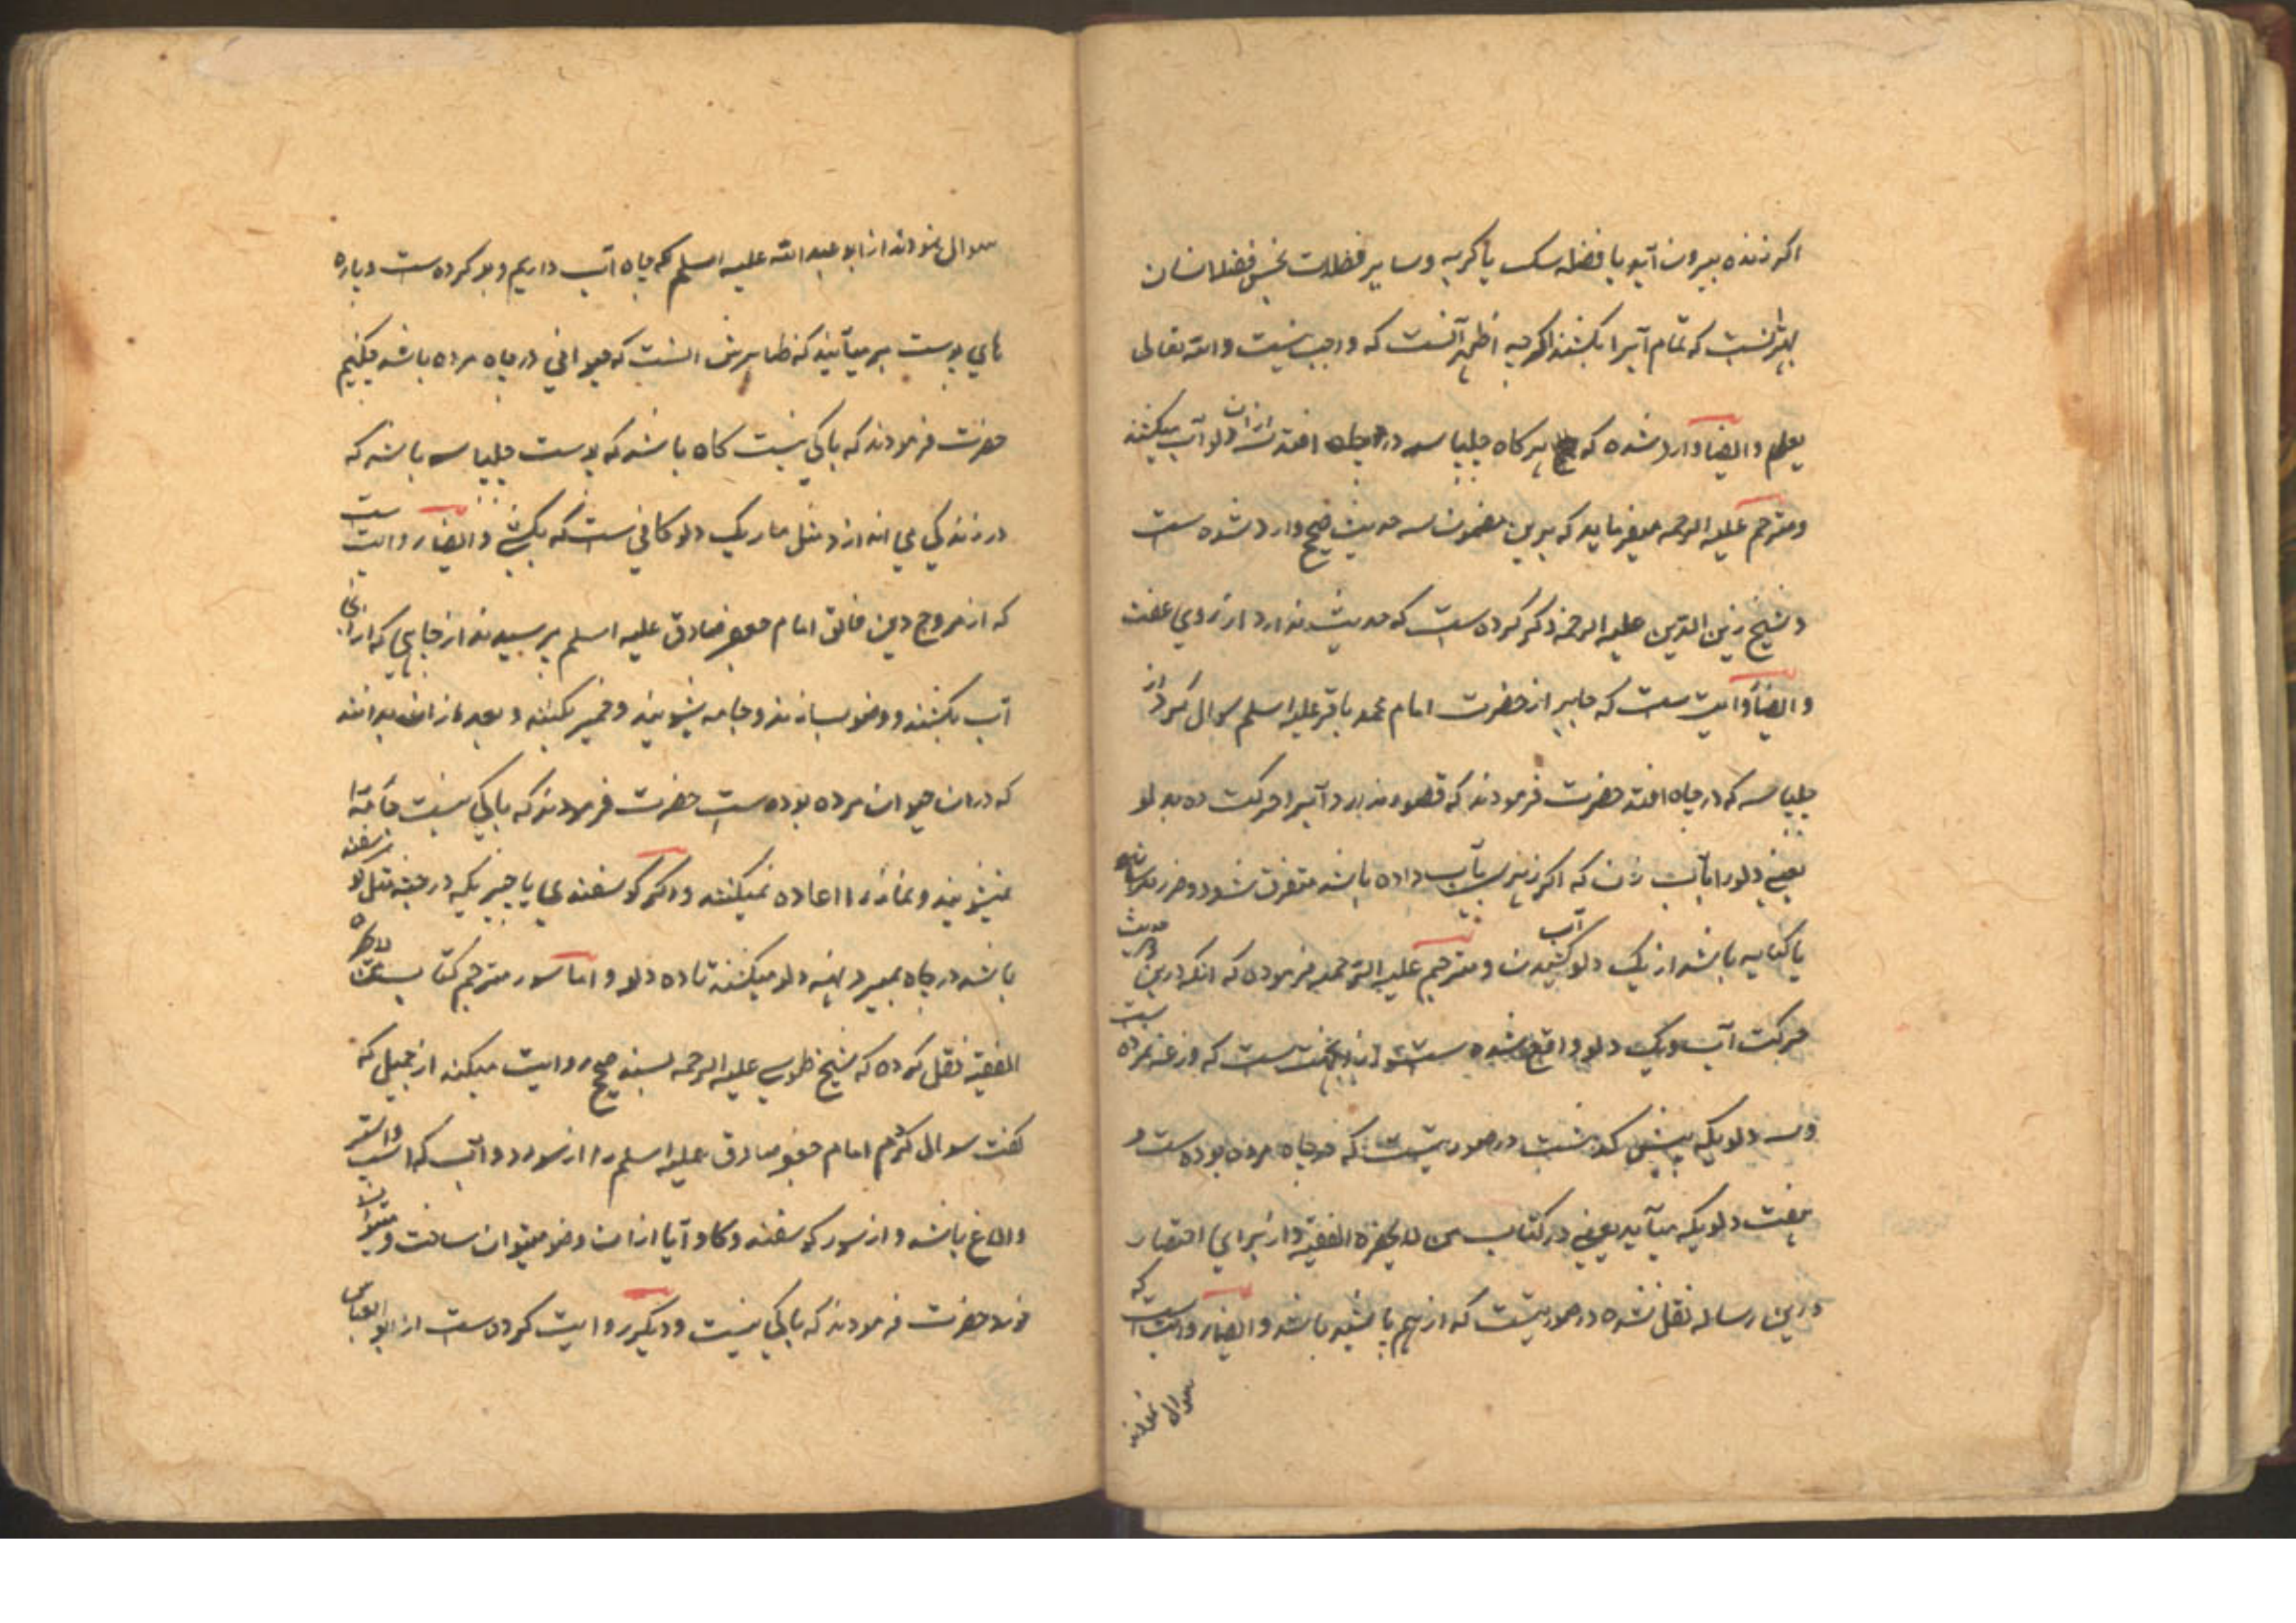 اکر زنده بیرون آید یا فضله سک یا کربه وسایر فضلات نجس فضلا انسان
بهتر آنست که تمام آبرا بکشند اکرچه اظهر آنست که واجب نیست والله تعالی
یعلم وایضا وارد شده که هر کاه چلپاسه در چاه افتد ازان دلو آب میکشند
ومترجم علیه الرحمه میفرماید که برین مضمون سه حدیث صحیح وارد شده ست
وشیخ زین الدین علیه الرحمه ذکر کرده ست که حدیث ندارد از روی غفلت
وایضا روایت ست که جابر از حضرت امام محمد باقر علیه اسلم سوال کرد از
چلپاسه که در چاه افتد حضرت فرمودند که قصور ندارد آبرا حرکت ده بدلو
یعنی دلو را بآب زن که اکر زهر بآب داده باشد متفرق شود وضرر نرساند
یا کنایه باشد از یک دلو آب کشیدن ومترجم علیه الرحمه فرموده که انکه درین حدیث
حرکت آب ویک دلو واقع شده ست که وزغه نمرده ست
وسه دلو یکه پیش کذشت در صورتیست که در چاه مرده بوده ست و
هفت دلو یکه میآید یعنی در کتاب من لا یحضره الفقیه واز برای اختصار
درین رساله نقل نشده در صورتیست که از هم پاشیده باشد وایضا روایت است که
سوال نمودند
سوال نمودند از ابو عبد الله علیه اسلم که چاه آب داریم وبو کرده ست وپاره
های پوست بر میآیند که ظاهرش انست که حیوانی در چاه مرده باشد چکنیم
حضرت فرمودند که باکی نیست کاه باشد که پوست چلپاسه باشد که
در زندکی می اندازد مثل مار یک دلو کافی ست که بکشی وایضا روایت ست
که از مروج دین خالق امام جعفر صادق علیه اسلم پرسیدند از چاهی که ازانجا
آب بکشند ووضو بسازند وجامه بشویند وخمیر بکنند وبعد ازان بدانند
که دران حیوان مرده بوده ست حضرت فرمودند که باکی نیست جامه را
نمیشویند ونماز را اعاده نمیکنند واکر کوسفندی یا چیزیکه در جثه مثل کوسفند
باشد در چاه بمیرد نه دلو میکشند تا ده دلو واما سور مترجم کتاب من لا یحضره
الفقیه نقل کرده که شیخ طوسی علیه الرحمه بسند صحیح روایت میکند از جمیل که
کفت سوال کردم امام جعفر صادق علیه اسلم را از سور دواب که اسب واستر
والاغ باشد واز سور کوسفند وکاو آیا ازان وضو میتوان ساخت ومیتوان
خورد حضرت فرمودند که باکی نیست ودیکر روایت کرده ست از ابو العباس